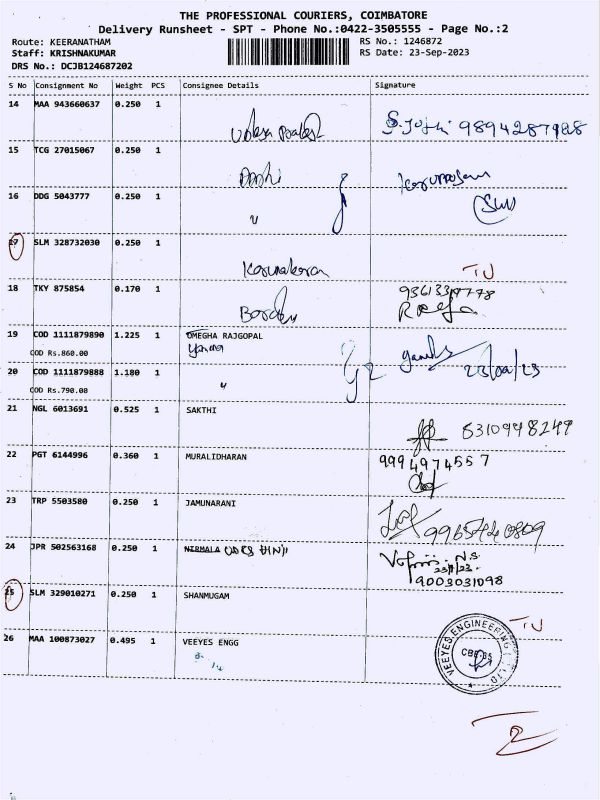 THE PROFESSIONAL COURIERS, COIMBATORE
Delivery Runsheet - SPT - Phone No.:0422-3505555 - Page No.:2
Route: KEERANATHAM
RS No.: 1246872
Staff: KRISHNAKUMAR
RS Date: 23-Sep-2023
DRS No.: DCJB124687202
S No Consignment No Weight PCS Consignee Details Signature
14 MAA 943660637 0.250 1
9894287988
15 TCG 27015067 0.250 1
16 DDG 5043777 0.250 1 "
17 SLM 328732030 0.250 1
Karunakaran
TU
18 TKY 875854 0.170 1
19 COD 1111879890 1.225 1 OMEGHA RAJGOPAL
COD Rs.860.00
20 COD 1111879888 1.180 1 " 23/09/23
COD Rs.790.00
21 NGL 6013691 0.525 1 SAKTHI
8310948249
22 PGT 6144996 0.360 1 MURALIDHARAN 9994974557
23 TRP 5503580 0.250 1 JAMUNARANI
24 JPR 502563168 0.250 1 NIRMALA
9003031098
25 SLM 329010271 0.250 1 SHANMUGAM
TU
26 MAA 100873027 0.495 1 VEEYES ENGG
VEEYES ENGINEERING
CBE-35
2